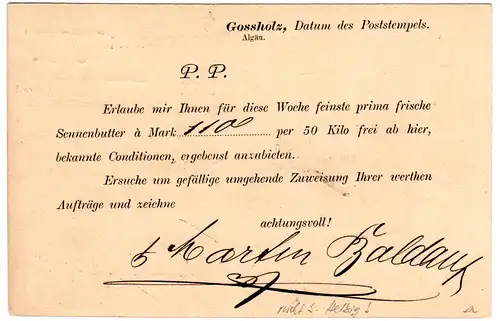 Gossholz, Datum des Poststempels.
Algäu.
P. P.
Erlaube mir Ihnen für diese Woche feinste prima frische
Sennenbutter à Mark 110 per 50 Kilo frei ab hier,
bekannte Conditionen, ergebenst anzubieten.
Ersuche um gefällige umgehende Zuweisung Ihrer werthen
Aufträge und zeichne
achtungsvoll!
Martin Baldauf